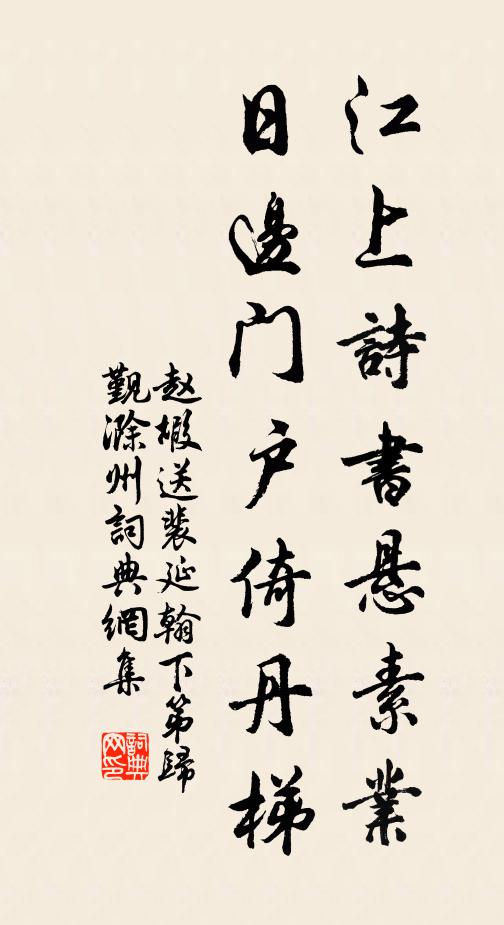 江上詩書悬素業
日邊門户倚丹梯
赵嘏送裴延翰下第歸
觐滁州詞典網集
詞典網印